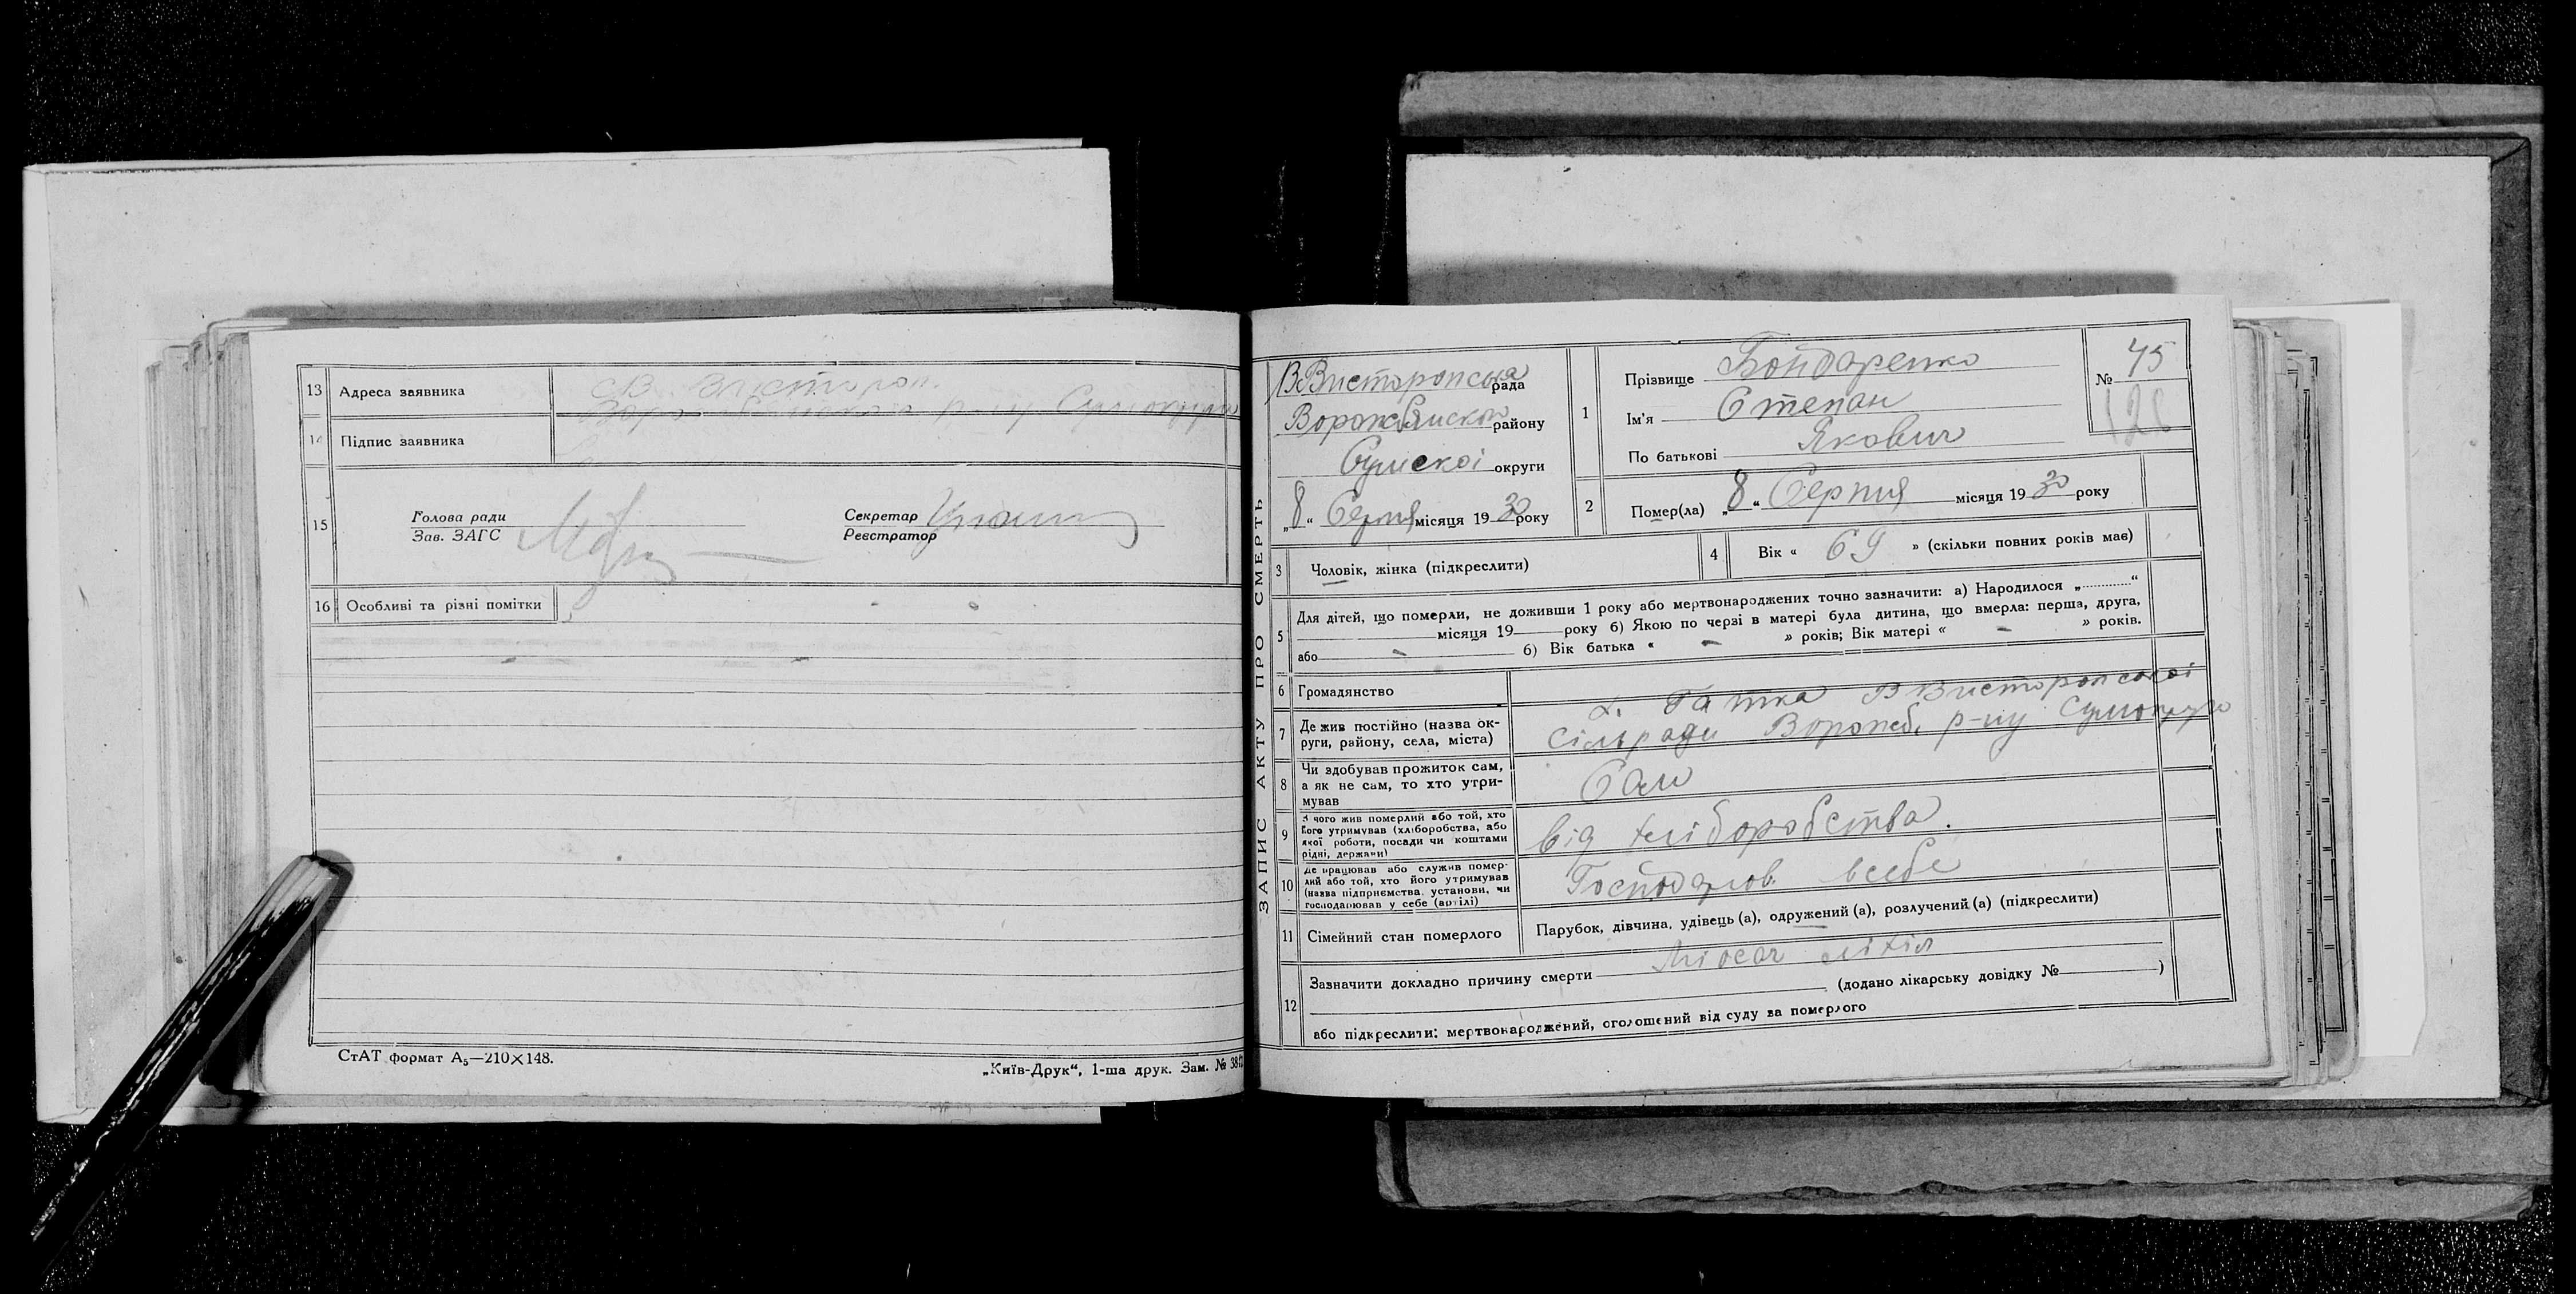 13 Адреса заявника
14 Підпис заявника
15 Голова ради
Зав. ЗАГС
Секретар
Реєстратор
16 Особливі та різні помітки
СтАТ формат А₅—210×148.
„Київ-Друк“, 1-ша друк. Зам. №
ЗАПИС АКТУ ПРО СМЕРТЬ
рада
району
Сумскої округи
„8“ Серпня місяця 1930 року
1 Прізвище Бондаренко
Ім'я Степан
По батькові Якович
№ 45
126
2 Помер(ла) „8“ Серпня місяця 1930 року
3 Чоловік, жінка (підкреслити)
4 Вік « 69 » (скільки повних років має)
5 Для дітей, що померли, не доживши 1 року або мертвонароджених точно зазначити: а) Народилося „ “
місяця 19 року б) Якою по черзі в матері була дитина, що вмерла: перша, друга,
або - б) Вік батька « - » років; Вік матері « - » років.
6 Громадянство
7 Де жив постійно (назва ок-
руги, району, села, міста)
х. Гатка
сільради Ворожб. р-ну
8 Чи здобував прожиток сам,
а як не сам, то хто утри-
мував
Сам
9 З чого жив померлий або той, хто
його утримував (хліборобства, або
якої роботи, посади чи коштами
рідні, держави)
від хліборобства.
10 Де працював або служив помер-
лий або той, хто його утримував
(назва підприємства, установи, чи
господарював у себе (артілі)
Господарюв. всебе
11 Сімейний стан померлого
Парубок, дівчина, удівець (а), одружений (а), розлучений (а) (підкреслити)
12 Зазначити докладно причину смерти
(додано лікарську довідку № )
або підкреслити: мертвонароджений, оголошений від суду за померлого